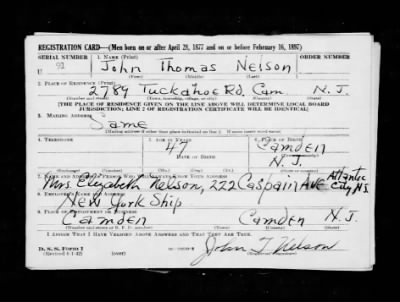 REGISTRATION CARD—(Men born on or after April 28, 1877 and on or before February 16, 1897)
SERIAL NUMBER 1. NAME (Print) ORDER NUMBER
U 92 John Thomas Nelson
(First) (Middle) (Last)
2. PLACE OF RESIDENCE (Print)
2789 Tuckahoe Rd. Cam. N.J.
(Number and street) (Town, township, village, or city) (County) (State)
[THE PLACE OF RESIDENCE GIVEN ON THE LINE ABOVE WILL DETERMINE LOCAL BOARD
JURISDICTION; LINE 2 OF REGISTRATION CERTIFICATE WILL BE IDENTICAL]
3. MAILING ADDRESS
Same
[Mailing address if other than place indicated on line 2. If same insert word same]
4. TELEPHONE 47 Camden
DATE OF BIRTH N.J.
7. NAME AND ADDRESS OF PERSON WHO WILL ALWAYS KNOW YOUR ADDRESS
Mrs. Elizabeth Nelson, 222 Caspain Ave Atlantic City N.J.
New York Ship
Camden Camden N.J.
(Number and street or R. F. D. number) (Town) (County) (State)
I AFFIRM THAT I HAVE VERIFIED ABOVE ANSWERS AND THAT THEY ARE TRUE.
D. S. S. Form 1
(Revised 4-1-42) John T Nelson